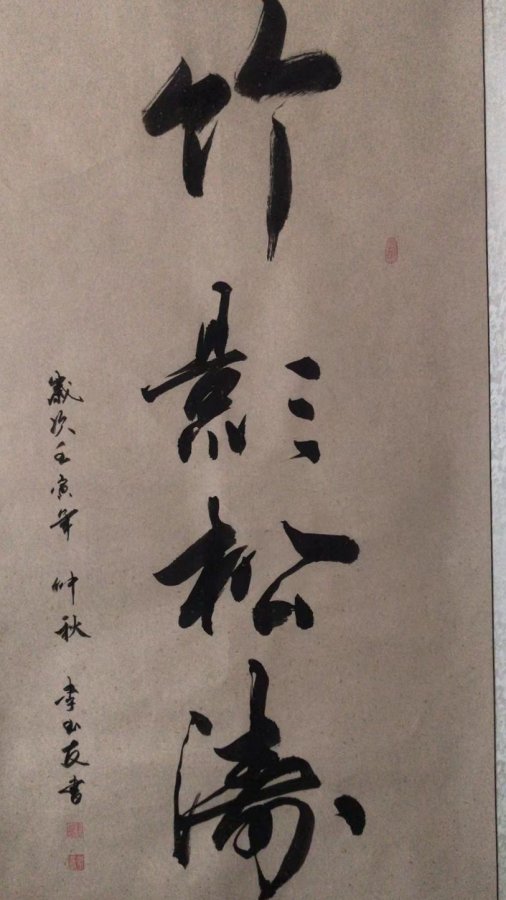 竹影松涛
歲次壬寅年 仲秋 李玉友書